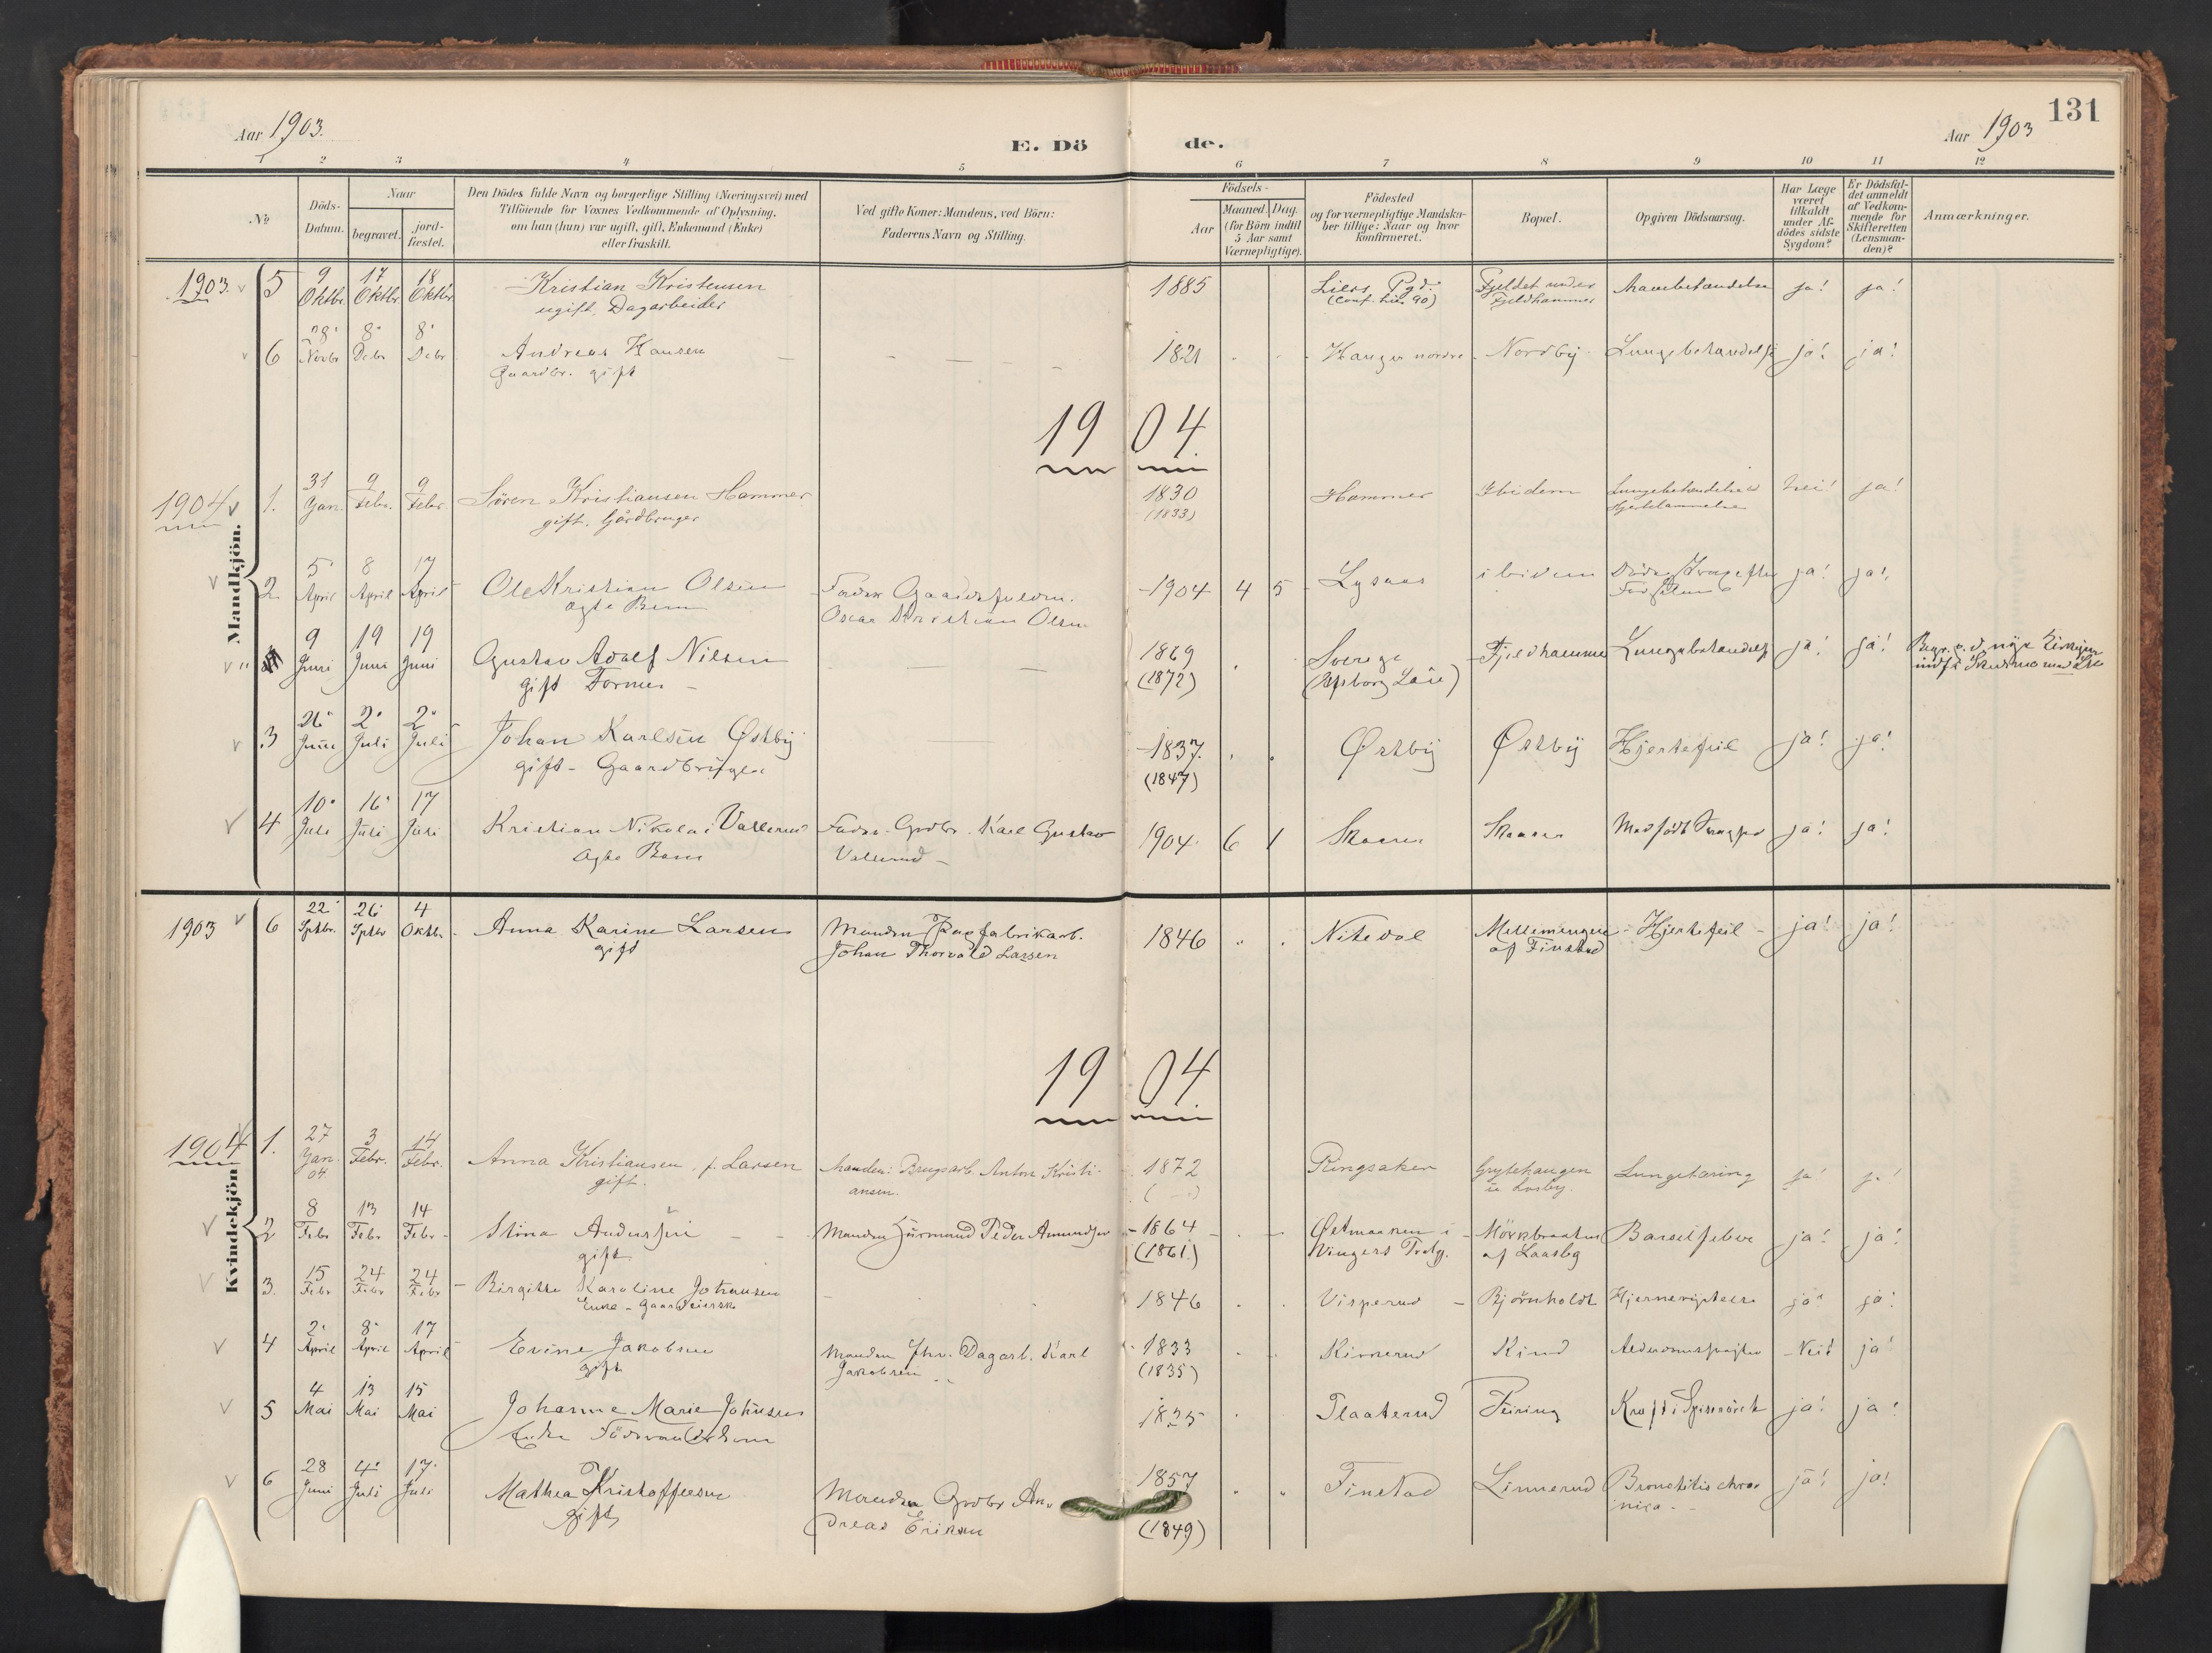 131
Aar 1903.
E. Döde.
Aar 1903
1 2 3 4 5 6 7 8 9 10 11 12
No
Döds-Datum.
Naar
begravet.
jord-fæstet.
Den Dödes fulde Navn og borgerlige Stilling (Næringsvei) med
Tilföiende for Voxnes Vedkommende af Oplysning,
om han (hun) var ugift, gift, Enkemand (Enke)
eller fraskilt.
Ved gifte Koner: Mandens, ved Börn:
Faderens Navn og Stilling.
Födsels-
Aar
Maaned. Dag.
(for Börn indtil
5 Aar samt
Værnepligtige).
Födested
og for værnepligtige Mandska-
ber tillige: Naar og hvor
konfirmeret.
Bopæl.
Opgiven Dödsaarsag.
Har Læge
været
tilkaldt
under Af-
dödes sidste
Sygdom?
Er Dödsfal-
det anmeldt
af Vedkom-
mende for
Skifteretten
(Lensman-
den)?
Anmærkninger.
Mandkjön.
1903. 5 9 Oktbr 17 Oktbr 18 Oktbr Kristian Kristensen 1885 Liers Pgd. Fjeldet under ja! ja!
ugift, Dagarbeider (Conf. Lier 90) Fjeldhammer
6 28 Novbr 8 Debr 8 Debr Andreas Hansen 1821 Hauger nordre Nordby Lungebetændelse ja! ja!
Gaardbr. gift
1904
1904 1. 31 Jan. 9 Febr. 9 Febr. Sören Kristiansen Hammer 1830 Hammer Ibidem Lungebetændelse nei! ja!
gift. Gårdbruger (1833) Hjertelammelse
2 5 April 8 April 17 April Ole Kristian Olsen Fader 1904 4 5 Lysaas ibidem ja! ja!
ægte Barn Oscar Kristian Olsen
9 Juni 19 Juni 19 Juni Gustav Adolf Nilsen 1869 Sverige Fjeldhamme Lungebetændelse ja! ja!
gift Former (1872)
3 26 Juni 2 Juli 2 Juli Johan Karlsen Østby 1837. Østby Østby Hjertefeil ja! ja!
gift - Gaardbruger (1847)
4 10 Juli 16 Juli 17 Juli Kristian Nikolai Vallerud Fader Grdbr. Karl Gustav 1904 6 1 Skaarer Skaarer Medfödt ja! ja!
ægte Barn Vallerud
Kvindekjön
1903 6 22 Sptbr. 26 Sptbr 4 Oktbr. Anna Karine Larsen Manden 1846 Nitedal Hjertefeil ja! ja!
gift Johan Thorvald Larsen af Finstad
1904
1904 1. 27 Jan. 04 3 Febr. 14 Febr. Anna Kristiansen, f. Larsen Manden: Brugsarb. Anton Kristi- 1872 Ringsaker Grytehaugen Lungetæring ja! ja!
gift. ansen. u. Losby.
2 8 Febr 13 Febr 14 Febr Stina Andersen Manden Peder Amundsen 1864 Østmarken i Mörkbraaten Barselfeber ja! ja!
gift (1861.) Vingers Prstg. af Laasby
3. 15 Febr 24 Febr 24 Febr Birgitte Karoline Johansen 1846 Visperud Bjørnholdt ja! ja!
Enke - Gaardeierske
4 2 April 8 April 17 April Evine Jakobsen Manden fhv. Dagarb. Karl 1833 Kinnerud Kind Nei! ja!
gift Jakobsen (1835)
5 4 Mai 13 Mai 15 Mai Johanne Marie Johnsen 1825 Plaaterud Feiring Kræft i Spiserøret ja! ja!
Enke
6 28 Juni 4 Juli 17 Juli Mathea Kristoffersen Manden Grdbr An- 1857 Finstad Linnerud Bronchitis chro- ja! ja!
gift dreas Eriksen (1849) nica